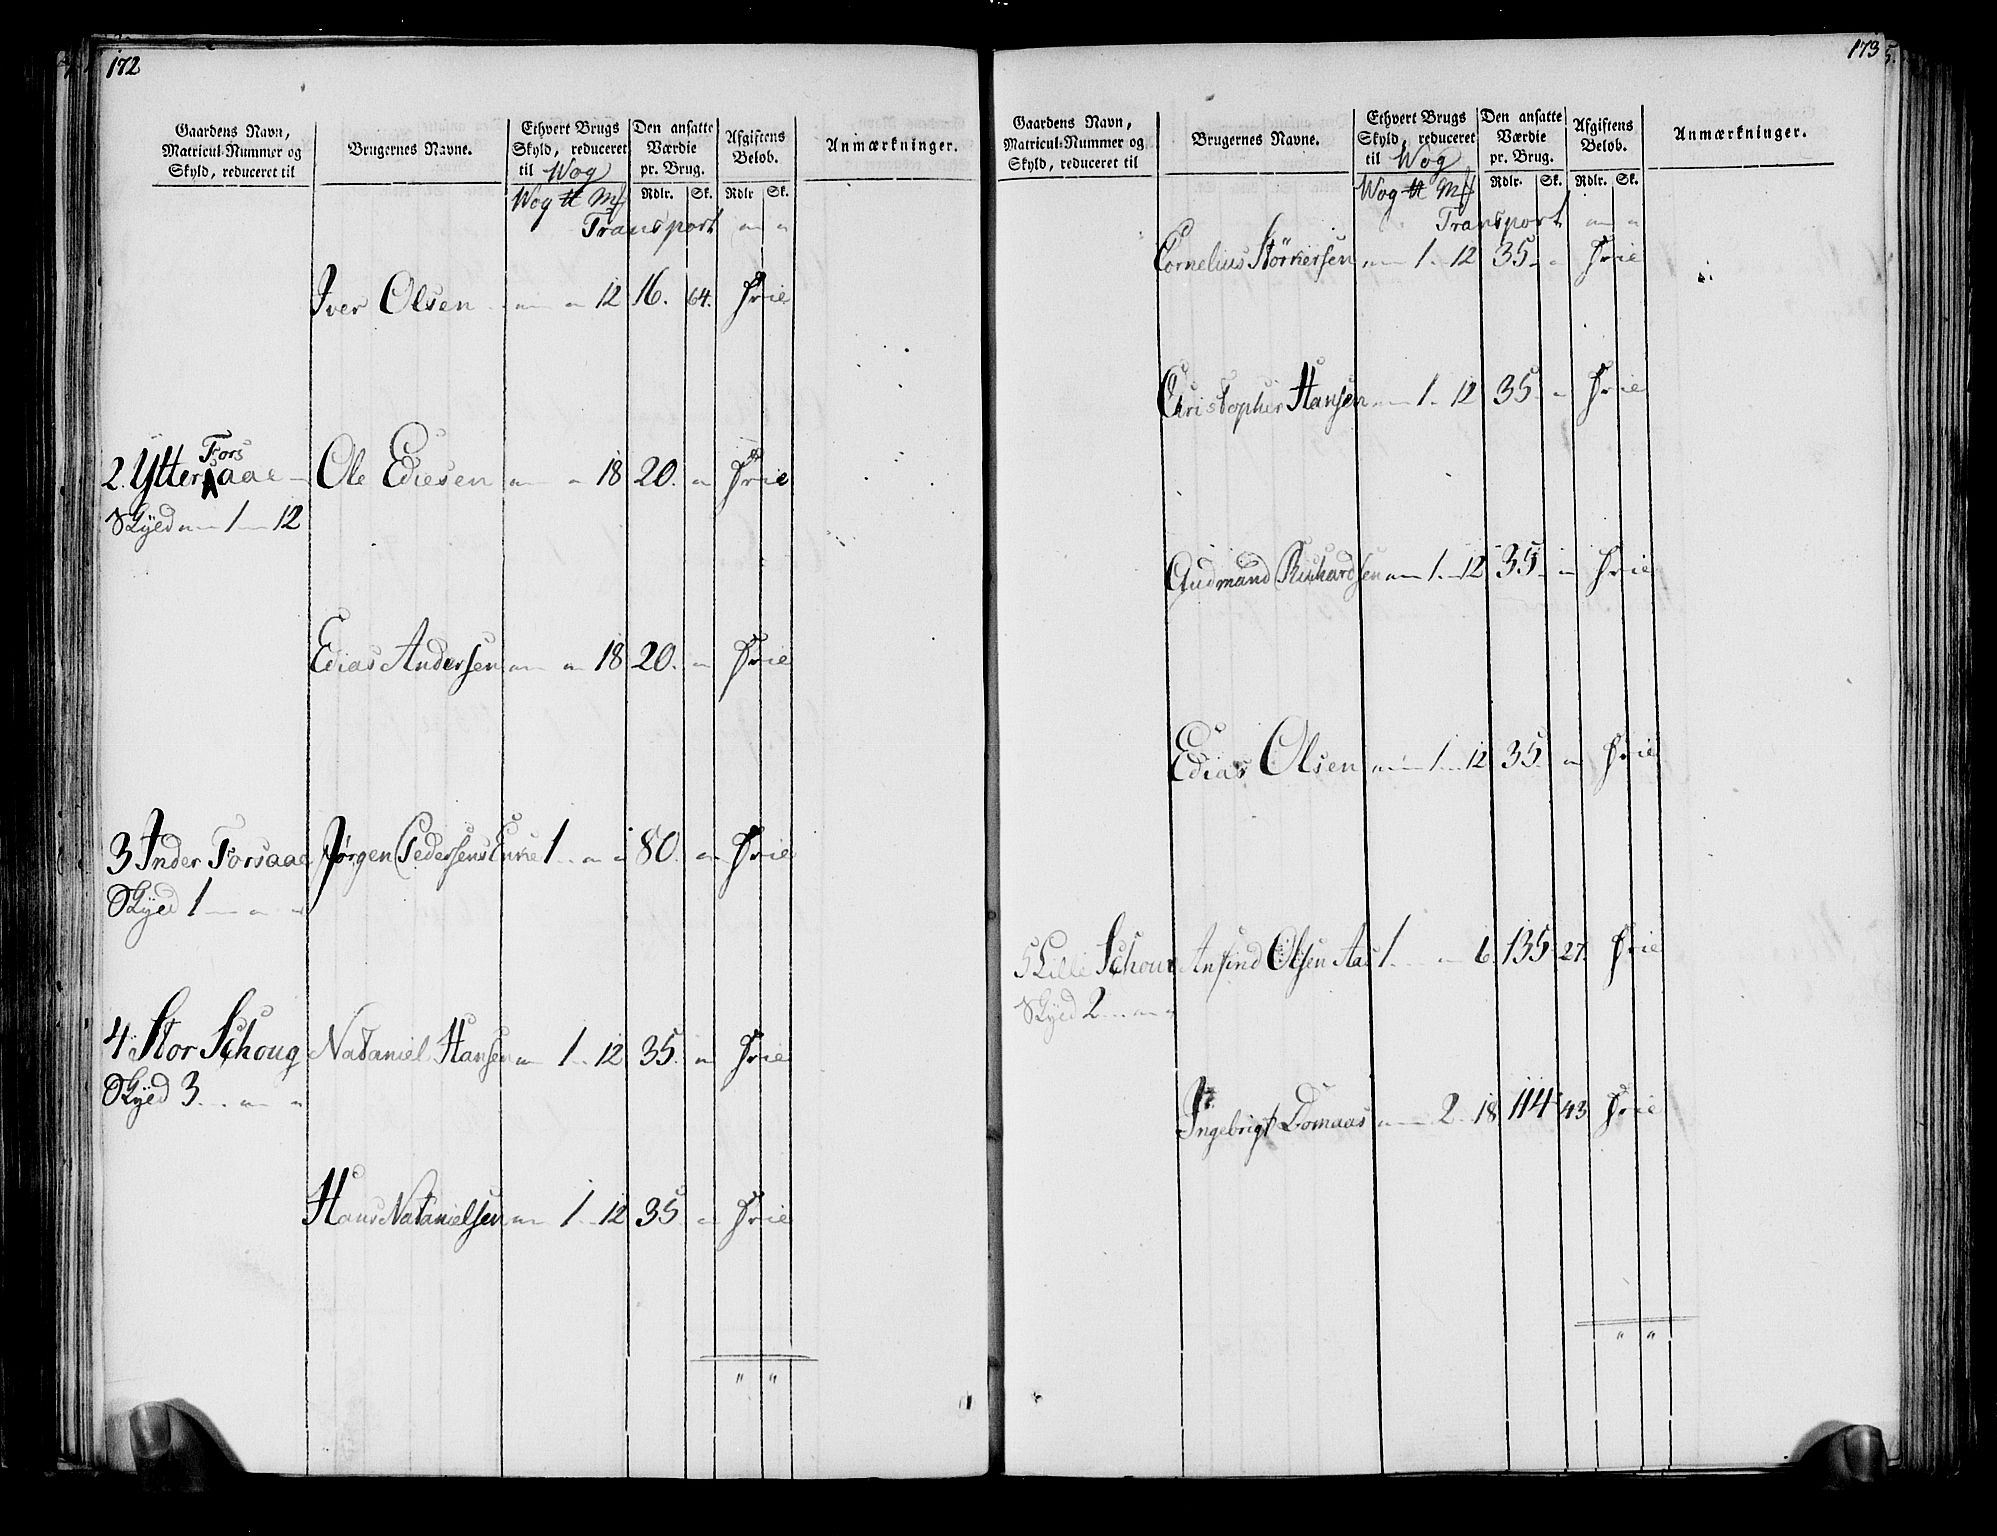 172
Gaardens Navn,
Matricul-Nummer og
Skyld, reduceret til
Brugernes Navne.
Ethvert Brugs
Skyld, reduceret
til Wog
Den ansatte
Værdie
pr. Brug.
Afgiftens
Beløb.
Anmærkninger.
Wog ℔ Mk
Rdlr. Sk. Rdlr Sk.
Transport " "
Iver Olsen " " 12 16. 64. Frie
Fors
2. Ytter^aae Ole Ediesen " " 18 20. " Frie
Skyed " 1 " 12
Edias Andersen " " 18 20. " Frie
3 Inder Forsaae Jørgen Pedersens Enke 1 " " 80. " Frie
Skyed 1 " "
4. Stor Schoug Nataniel Hansen " 1 12 35. " Frie
Skyed 3 " "
Hans Natanielsen " 1 12 35 " Frie
" "
173
Gaardens Navn,
Matricul-Nummer og
Skyld, reduceret til
Brugernes Navne.
Ethvert Brugs
Skyld, reduceret
til Wog
Den ansatte
Værdie
pr. Brug.
Afgiftens
Beløb.
Anmærkninger.
Wog ℔ Mk
Rdlr. Sk. Rdlr. Sk.
Transport " "
Cornelius Störkersen " 1 12 35. " Frie
Christopher Hansen " 1 12 35 " Frie
Gudmand Richardsen " 1 12 35 " Frie
Edias Olsen " 1 12 35. " Frie
5 Lille Schoug Anfind Olsen Aas 1 " 6. 135 27. Frie
Skyed 2 " "
Ingebrigt Domaas " 2 18 114 43 Frie
" "